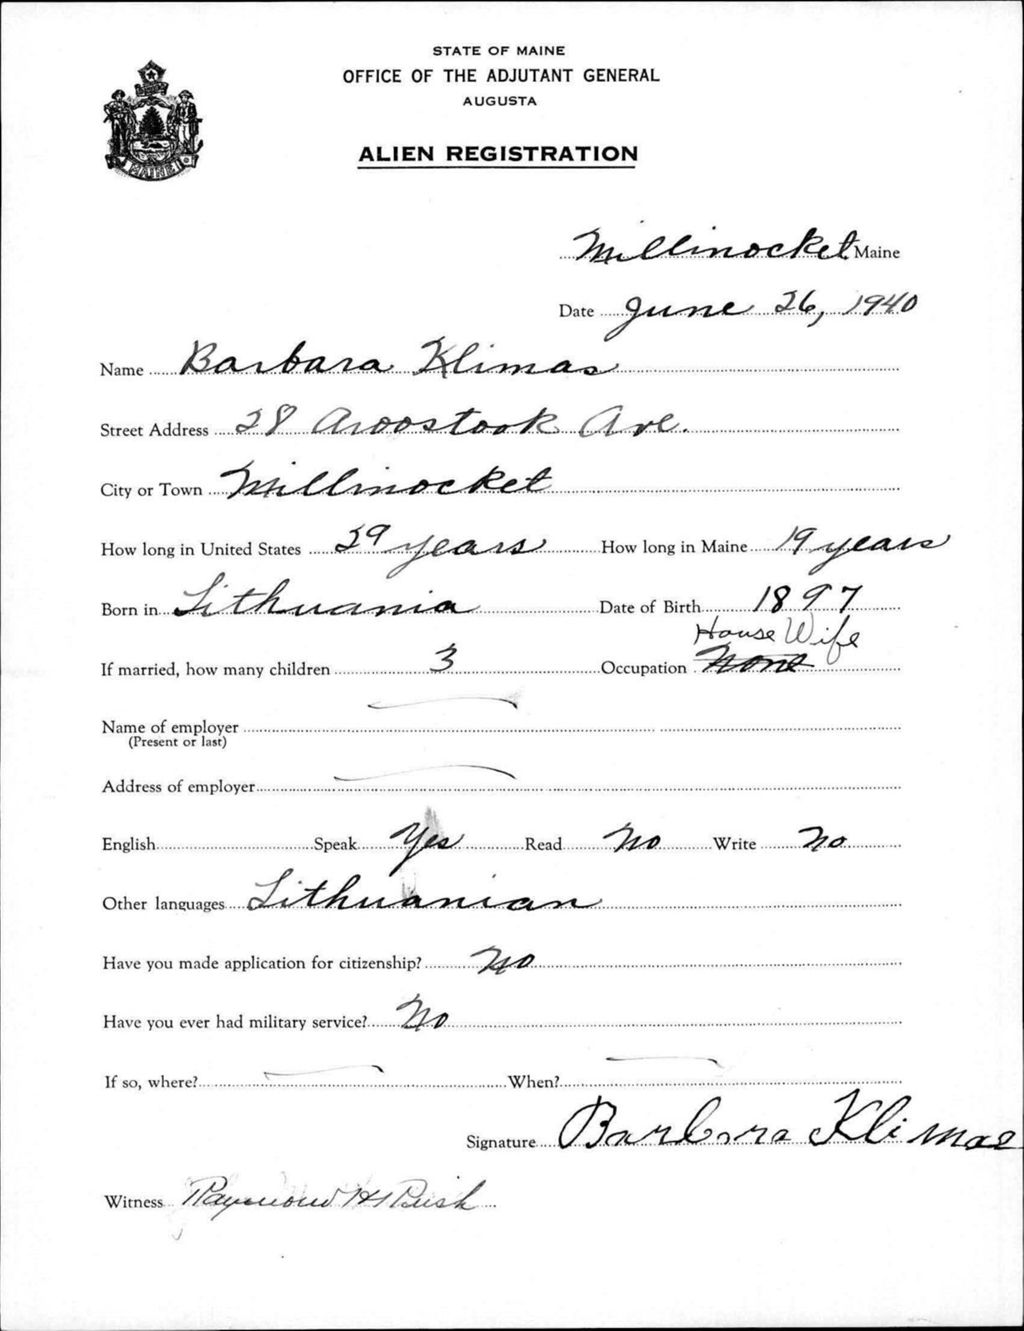 STATE OF MAINE
OFFICE OF THE ADJUTANT GENERAL
AUGUSTA
ALIEN REGISTRATION
MAINE
Millinocket Maine
Date June 26, 1940
Name Barbara Klimas
Street Address 28 Aroostook Ave.
City or Town Millinocket
How long in United States 29 years How long in Maine 19 years
Born in Lithuania Date of Birth 1897
House Wife
If married, how many children 3 Occupation None
Name of employer
(Present or last)
Address of employer
English Speak Yes Read No Write No
Other languages Lithuanian
Have you made application for citizenship? No
Have you ever had military service? No
If so, where? When?
Signature Barbara Klimas
Witness Raymond H Rush